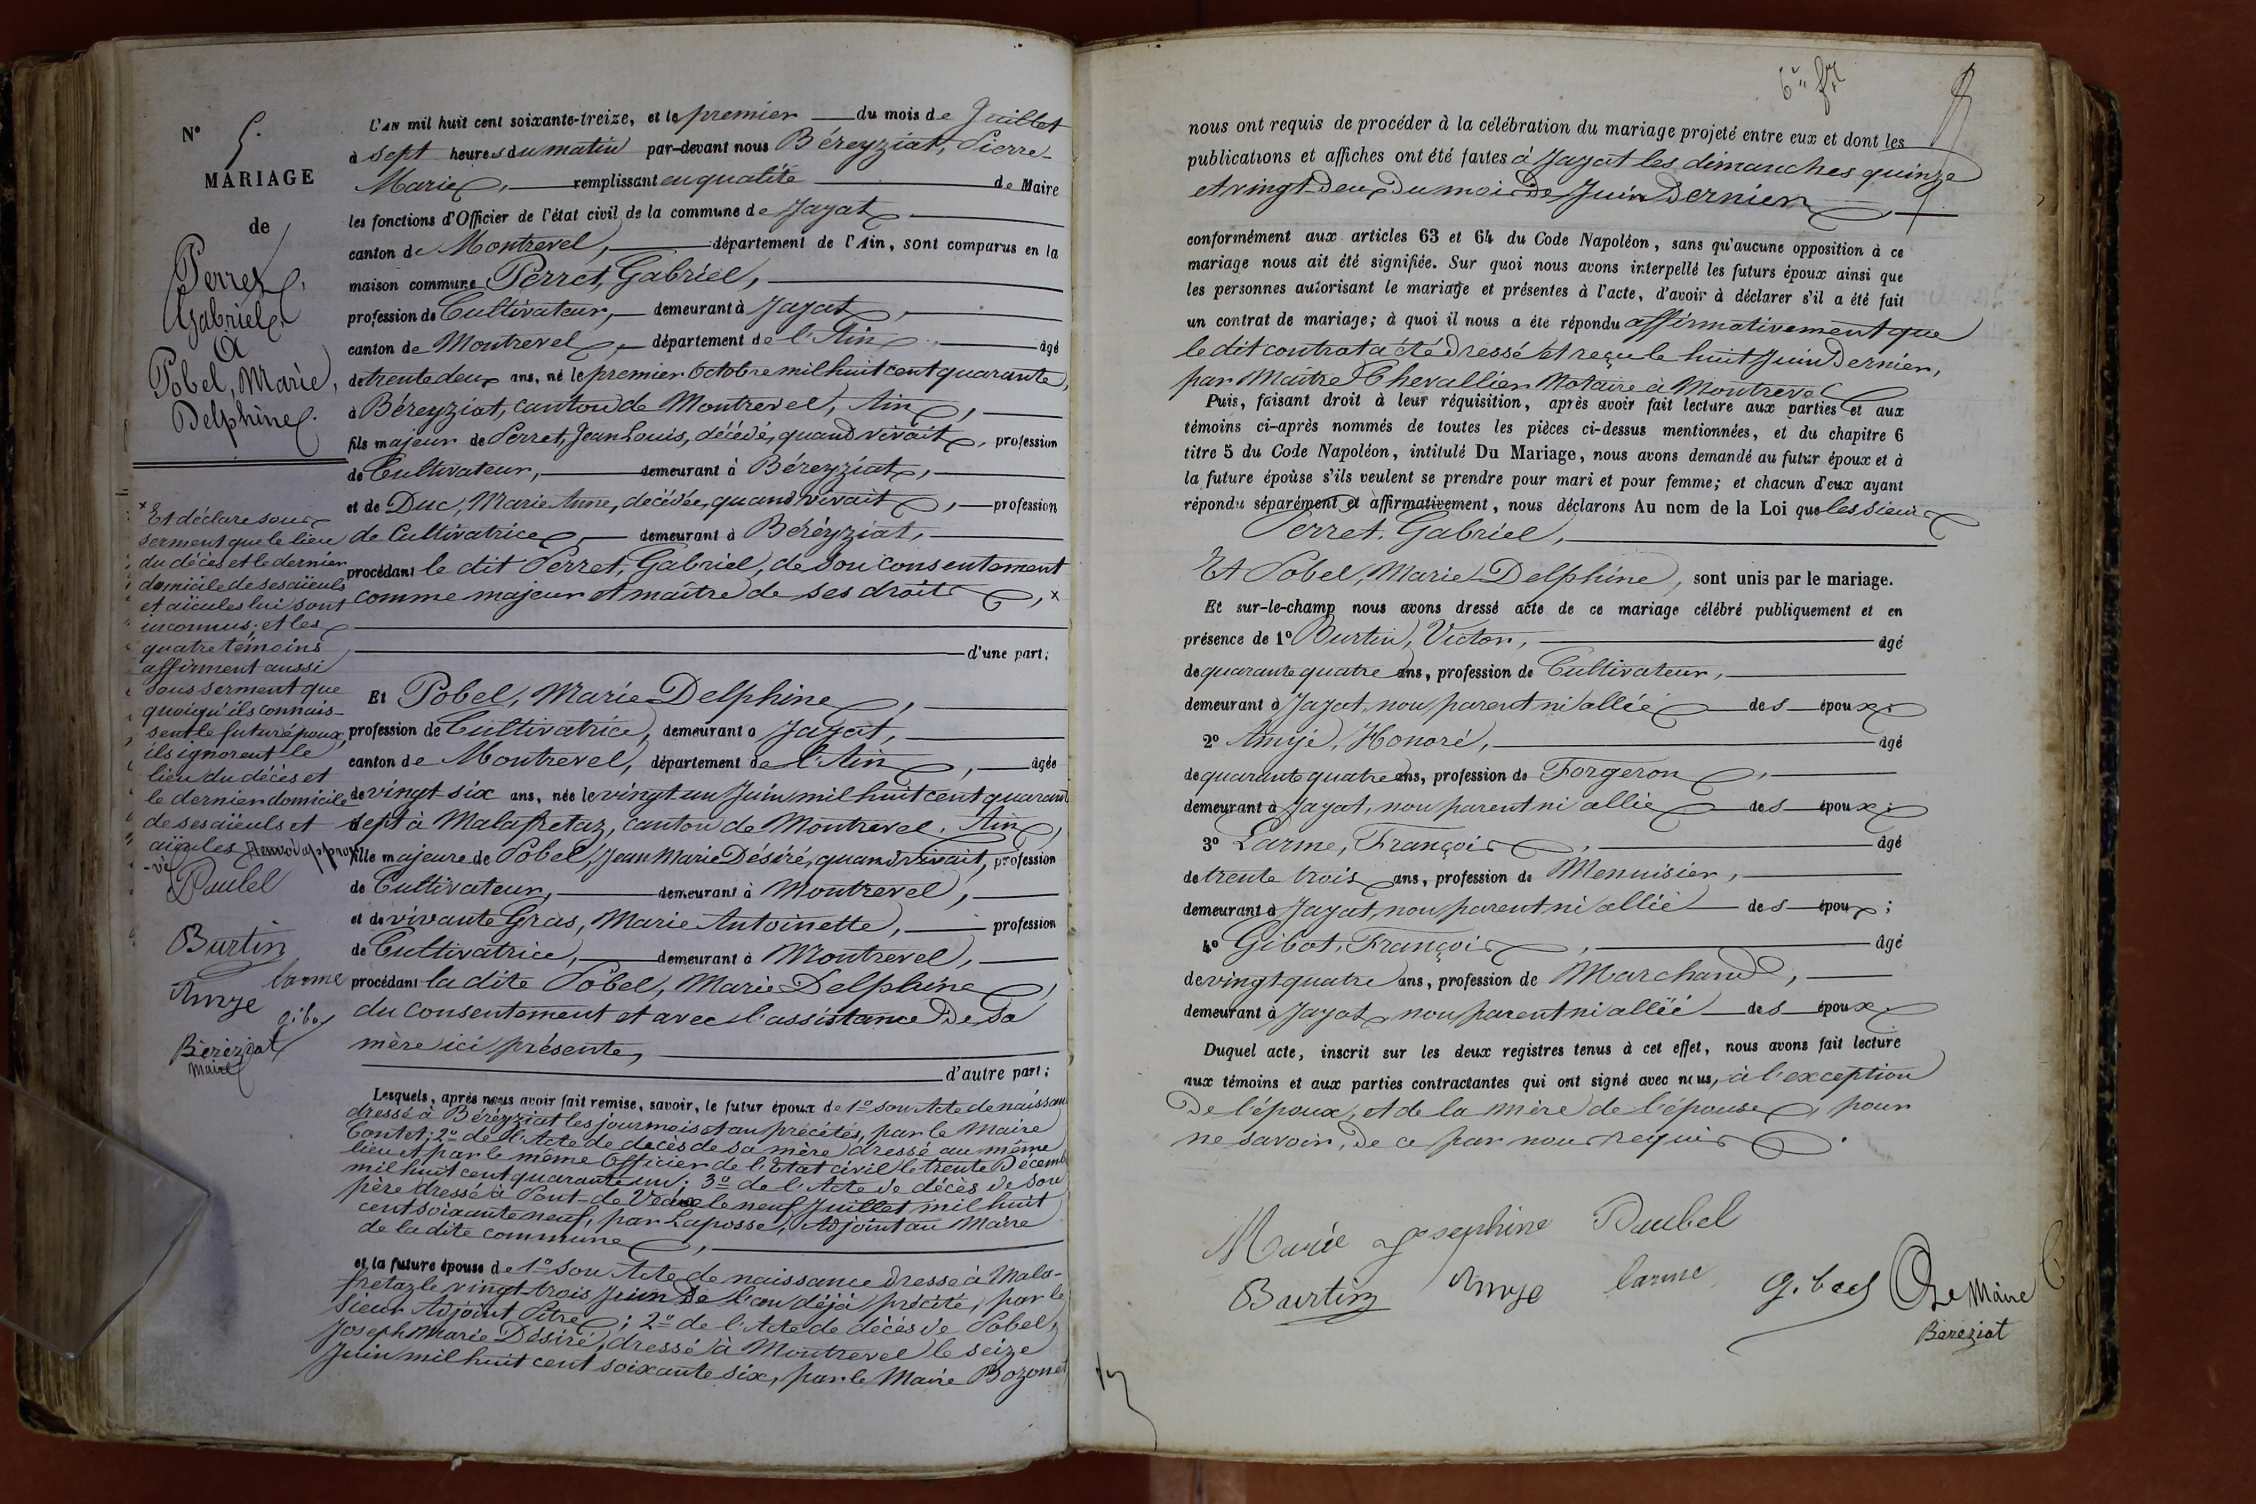 N° 5.
MARIAGE
de
Perret,
Gabriel,
à
Pobel, Marie,
Delphine.
L'AN mil huit cent soixante-treize, et le premier du mois de Juillet
à sept heures du matin par-devant nous Béreyziat, Pierre-
Marie, remplissant en qualité de Maire
les fonctions d'Officier de l'état civil de la commune de Jayat
canton de Montrevel, département de l'Ain, sont comparus en la
maison commune Perret, Gabriel,
profession de Cultivateur, demeurant à Jayat,
canton de Montrevel, département de l'Ain âgé
de trente deux ans, né le premier Octobre mil huit cent quarante,
à Béreyziat, canton de Montrevel, Ain,
fils majeur de Perret, Jean Louis, décédé, quand vivait, profession
de Cultivateur, demeurant à Béreyziat,
et de Duc, Marie Anne, décédée, quand vivait, profession
de Cultivatrice, demeurant à Béréyziat,
procédant le dit Perret, Gabriel, de son consentement
comme majeur et maître de ses droits, x
d'une part;
x Et déclare sous
serment que le lieu
du décès et le dernier
domicile de ses aïeuls
et aïeules lui sont
inconnus; et les
quatre témoins
affirment aussi
sous serment que
quoiqu'ils connais-
sent le futur époux,
ils ignorent le
lieu du décès et
le dernier domicile
de ses aïeuls et
aïeules Renvoi approu
-vé
Paubel
Burtin
larme
Amye
gibo
Béréziat
Maire
Et Pobel, Marie Delphine,
profession de Cultivatrice, demeurant à Jayat,
canton de Montrevel, département de l'Ain, âgée
de vingt-six ans, née le vingt un Juin mil huit cent quarant
sept à Malafretaz, canton de Montrevel, Ain,
fille majeure de Pobel, Jean Marie Désiré, quand vivait, profession
de Cultivateur, demeurant à Montrevel,
et de vivante Gras, Marie Antoinette, profession
de Cultivatrice, demeurant à Montrevel,
procédant la dite Pobel, Marie Delphine,
du consentement et avec l'assistance de sa
mère ici présente,
d'autre part;
Lesquels, après nous avoir fait remise, savoir, le futur époux de 1° son Acte de naissan
dressé à Béréyziat les jour mois et an précités, par le Maire
Contet; 2° de l'Acte de décès de sa mère dressé au même
lieu et par le même Officier de l'Etat civil le trente Décemb
mil huit cent quarante un; 3° de l'Acte de décès de son
père dressé à Pont-de-Veaux le neuf Juillet mil huit
cent soixante neuf, par Laposse, Adjoint au Maire
de la dite commune,
et la future épouse de 1° son Acte de naissance dressé à Mala-
fretaz le vingt-trois Juin de l'an déjà précité, par le
Sieur Adjoint Pitre; 2° de l'Acte de décès de Pobel,
Joseph Marie Désiré, dressé à Montrevel le seize
Juin mil huit cent soixante six, par le Maire Bozonet
nous ont requis de procéder à la célébration du mariage projeté entre eux et dont les
publications et affiches ont été faites à Jayat les dimanches quinze
et vingt-deux du mois de Juin Dernier
conformément aux articles 63 et 64 du Code Napoléon, sans qu'aucune opposition à ce
mariage nous ait été signifiée. Sur quoi nous avons interpellé les futurs époux ainsi que
les personnes autorisant le mariage et présentes à l'acte, d'avoir à déclarer s'il a été fait
un contrat de mariage; à quoi il nous a été répondu affirmativement que
le dit contrat a été dressé et reçu le huit Juin Dernier,
par Maître Chevallier Notaire à Montrevel
Puis, faisant droit à leur réquisition, après avoir fait lecture aux parties et aux
témoins ci-après nommés de toutes les pièces ci-dessus mentionnées, et du chapitre 6
titre 5 du Code Napoléon, intitulé Du Mariage, nous avons demandé au futur époux et à
la future épouse s'ils veulent se prendre pour mari et pour femme; et chacun d'eux ayant
répondu séparément et affirmativement, nous déclarons Au nom de la Loi que les sieurs
Perret, Gabriel,
Et Pobel, Marie Delphine, sont unis par le mariage.
Et sur-le-champ nous avons dressé acte de ce mariage célébré publiquement et en
présence de 1° Burtin, Victor, âgé
de quarante quatre ans, profession de Cultivateur,
demeurant à Jayat, non parent ni allié des époux;
2° Amyé, Honoré, âgé
de quarante quatre ans, profession de Forgeron,
demeurant à Jayat, non parent ni allié des époux;
3° Larme, François, âgé
de trente trois ans, profession de Menuisier,
demeurant à Jayat, non parent ni allié des époux;
4° Gibot, François, âgé
de vingt quatre ans, profession de Marchand,
demeurant à Jayat, non parent ni allié des époux
Duquel acte, inscrit sur les deux registres tenus à cet effet, nous avons fait lecture
aux témoins et aux parties contractantes qui ont signé avec nous, à l'exception
De l'époux, et de la mère de l'épouse, pour
ne savoir, de ce par nous requis.
Marie Josephine Paubel
Burtin Amye larme
Le Maire
Béréziat